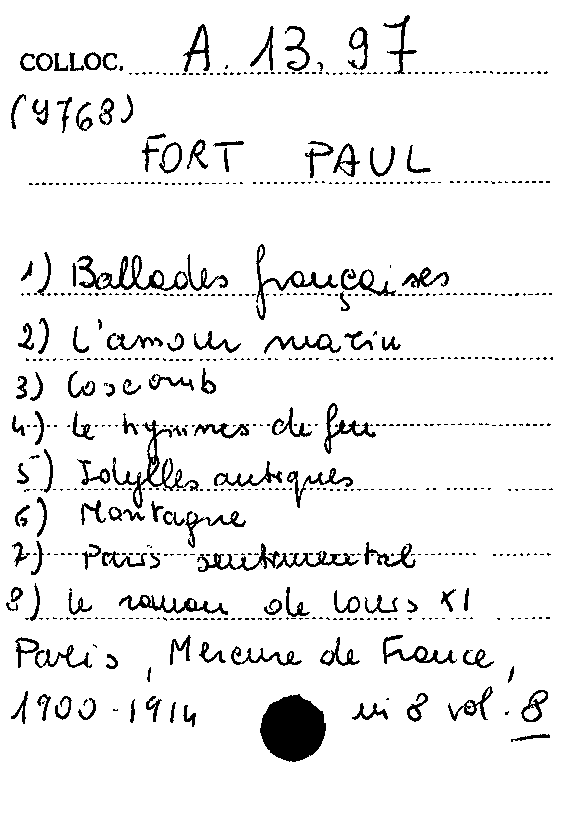 COLLOC. A. 13. 97
(9768)
FORT PAUL
1) Ballades françaises
2) L'amour marin
3) Coxcomb
4) Le hymnes de feu
5) Idylles antiques
6) Montagne
7) Paris sentimental
8) Le roman de Louis XI
Paris, Mercure de France,
1900-1914 in 8 vol. 8